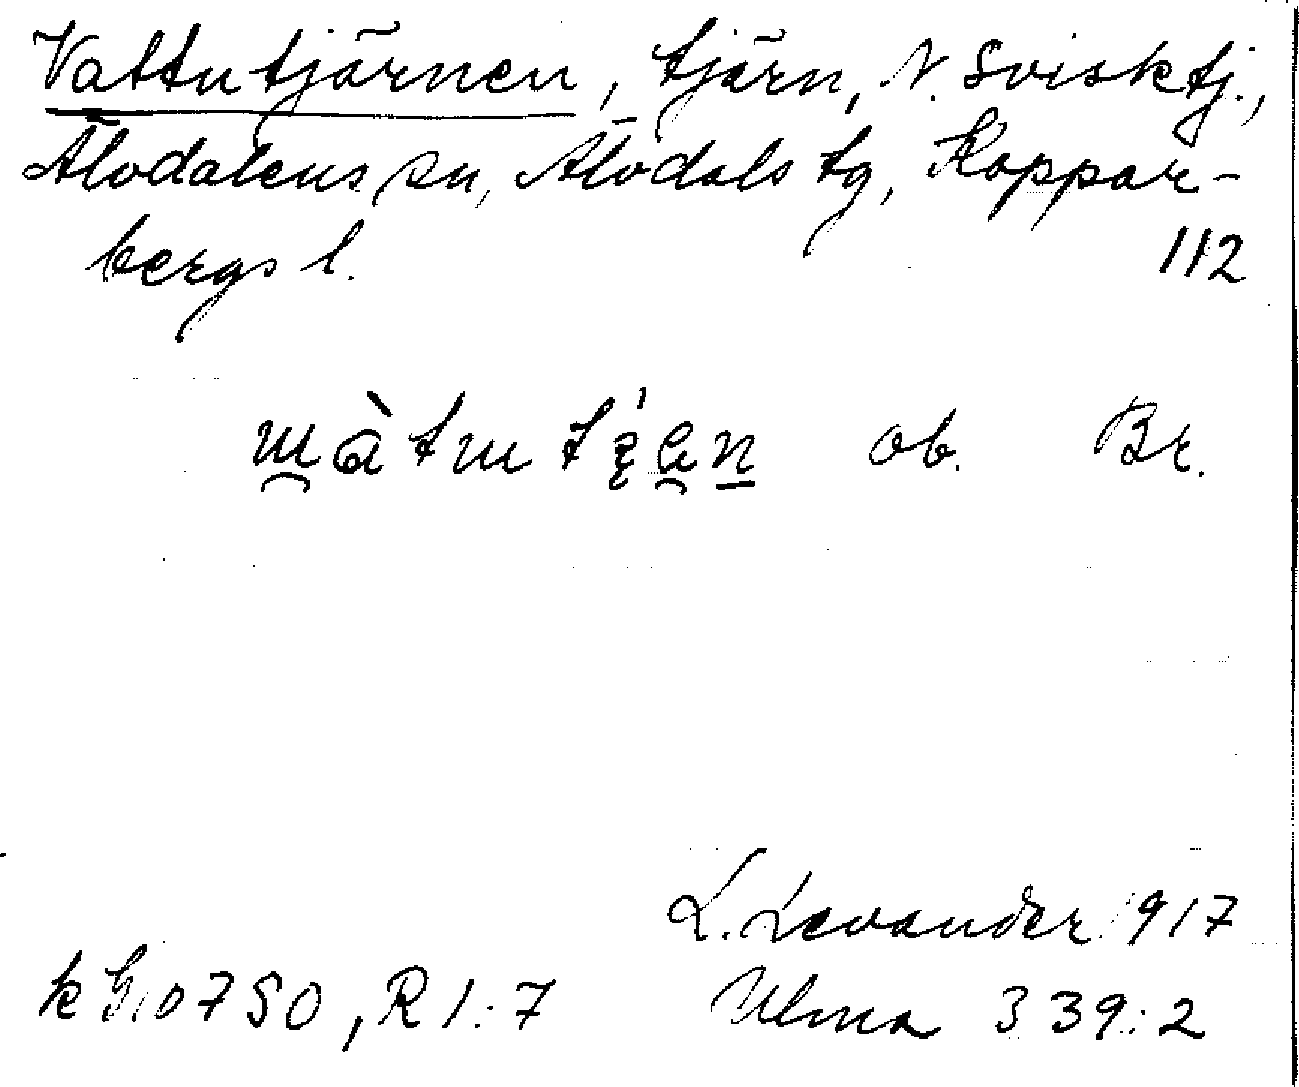 Vattutjärnen, tjärn, N. Svisktj.,
Älvdalens sn, Älvdals tg, Koppar-
bergs l. 112
ob. Br.
L. Levander 1917
k G 10750, R 1:7 Ulma 339:2